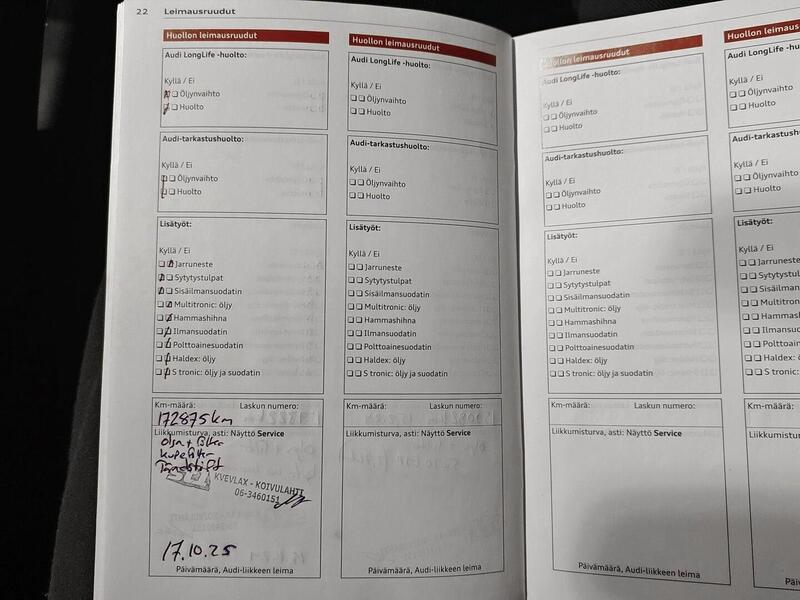 22 Leimausruudut
Huollon leimausruudut
Audi LongLife -huolto:
Kyllä / Ei
Öljynvaihto
Huolto
Audi-tarkastushuolto:
Kyllä / Ei
Öljynvaihto
Huolto
Lisätyöt:
Kyllä / Ei
Jarruneste
Sytytystulpat
Sisäilmansuodatin
Multitronic: öljy
Hammashihna
Ilmansuodatin
Polttoainesuodatin
Haldex: öljy
S tronic: öljy ja suodatin
Km-määrä: Laskun numero:
172875km
Liikkumisturva, asti: Näyttö Service
olja + filter
kupefilter
Tändstift
KVEVLAX - KOIVULAHTI
06-3460151
17.10.25
Päivämäärä, Audi-liikkeen leima
Huollon leimausruudut
Audi LongLife -huolto:
Kyllä / Ei
Öljynvaihto
Huolto
Audi-tarkastushuolto:
Kyllä / Ei
Öljynvaihto
Huolto
Lisätyöt:
Kyllä / Ei
Jarruneste
Sytytystulpat
Sisäilmansuodatin
Multitronic: öljy
Hammashihna
Ilmansuodatin
Polttoainesuodatin
Haldex: öljy
S tronic: öljy ja suodatin
Km-määrä: Laskun numero:
Liikkumisturva, asti: Näyttö Service
Päivämäärä, Audi-liikkeen leima
Huollon leimausruudut
Audi LongLife -huolto:
Kyllä / Ei
Öljynvaihto
Huolto
Audi-tarkastushuolto:
Kyllä / Ei
Öljynvaihto
Huolto
Lisätyöt:
Kyllä / Ei
Jarruneste
Sytytystulpat
Sisäilmansuodatin
Multitronic: öljy
Hammashihna
Ilmansuodatin
Polttoainesuodatin
Haldex: öljy
S tronic: öljy ja suodatin
Km-määrä: Laskun numero:
Liikkumisturva, asti: Näyttö Service
Päivämäärä, Audi-liikkeen leima
Huollon leimausruudut
Audi LongLife -h
Kyllä / Ei
Öljynvaihto
Huolto
Audi-tarkastush
Kyllä / Ei
Öljynvaihto
Huolto
Lisätyöt:
Kyllä / Ei
Jarruneste
Sytytystulpa
Sisäilmansuo
Multitronic:
Hammashih
Ilmansuoda
Polttoaines
Haldex: öl
S tronic: öl
Km-määrä:
Liikkumisturva
Päiv